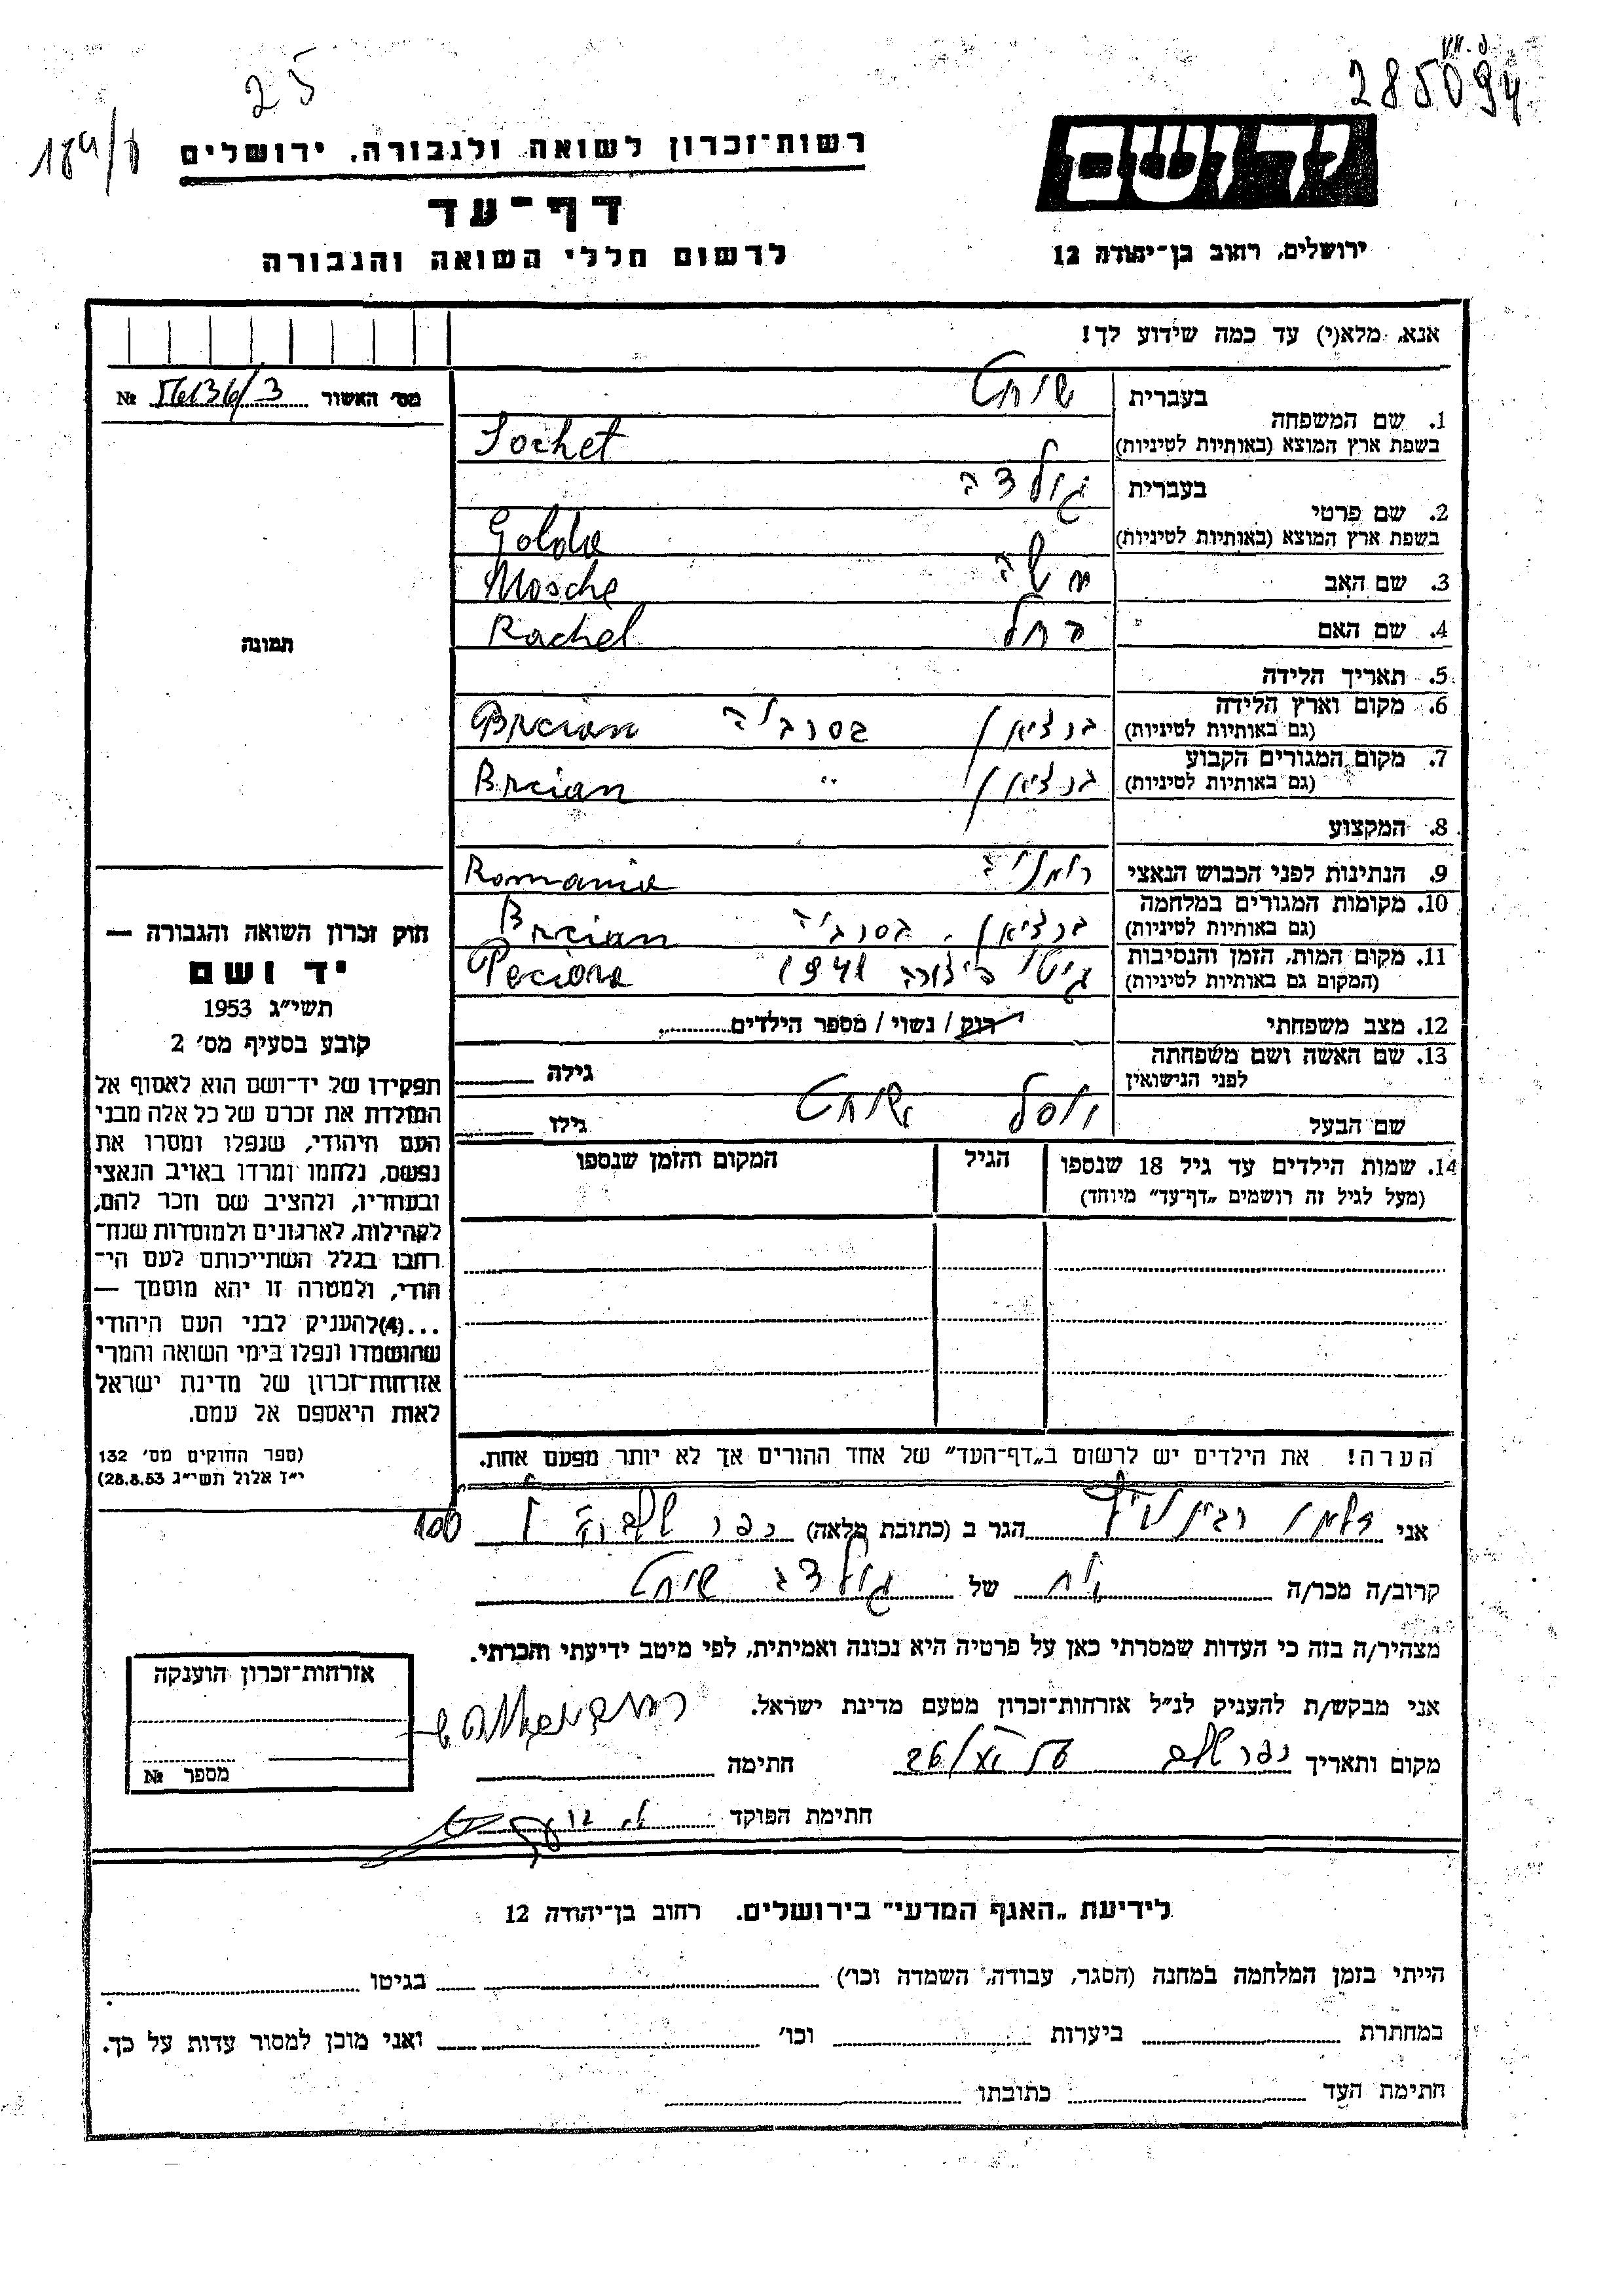 285094
25
רשות־זכרון לשואה ולגבורה, ירושלים
דף־עד
לרשום חללי השואה והגבורה
יד ושם
ירושלים, רחוב בן־יהודה 12
אנא, מלא(י) עד כמה שידוע לך!
מס׳ האשור 56136/3 №
תמונה
1. שם המשפחה בעברית שוחט
בשפת ארץ המוצא (באותיות לטיניות) Sochet
2. שם פרטי בעברית גולדה
בשפת ארץ המוצא (באותיות לטיניות) Golda
3. שם האב משה Mosche
4. שם האם רחל Rachel
5. תאריך הלידה
6. מקום וארץ הלידה
(גם באותיות לטיניות) ברציאן בסרביה Brcian
7. מקום המגורים הקבוע
(גם באותיות לטיניות) ברציאן " Brcian
8. המקצוע
9. הנתינות לפני הכבוש הנאצי רומניה Romania
10. מקומות המגורים במלחמה
(גם באותיות לטיניות) ברציאן, בסרביה Brcian
11. מקום המות, הזמן והנסיבות
(המקום גם באותיות לטיניות) גיטו 1941 Peciora
12. מצב משפחתי רוק / נשוי / מספר הילדים
13. שם האשה ושם משפחתה
לפני הנישואין גילה
שם הבעל יוסל שוחט גילו
14. שמות הילדים עד גיל 18 שנספו
(מעל לגיל זה רושמים „דף־עד" מיוחד)
הגיל
המקום והזמן שנספו
חוק זכרון השואה והגבורה —
יד ושם
תשי״ג 1953
קובע בסעיף מס׳ 2
תפקידו של יד־ושם הוא לאסוף אל
המולדת את זכרם של כל אלה מבני
העם היהודי, שנפלו ומסרו את
נפשם, נלחמו ומרדו באויב הנאצי
ובעוזריו, ולהציב שם וזכר להם,
לקהילות, לארגונים ולמוסדות שנח־
רבו בגלל השתייכותם לעם הי־
הודי, ולמטרה זו יהא מוסמך —
...(4)להעניק לבני העם היהודי
שהושמדו ונפלו בימי השואה והמרי
אזרחות־זכרון של מדינת ישראל
לאות היאספם אל עמם.
(ספר החוקים מס׳ 132
י״ז אלול תשי״ג 28.8.53)
הערה! את הילדים יש לרשום ב„דף־העד" של אחד ההורים אך לא יותר מפעם אחת.
אני רבינוביץ הגר ב (כתובת מלאה) כפר שלם 100
קרוב/ה מכר/ה אח של גולדה שוחט
מצהיר/ה בזה כי העדות שמסרתי כאן על פרטיה היא נכונה ואמיתית, לפי מיטב ידיעתי והכרתי.
אני מבקש/ת להעניק לנ״ל אזרחות־זכרון מטעם מדינת ישראל.
מקום ותאריך כפר שלם חתימה
חתימת הפוקד
אזרחות־זכרון הוענקה
מספר №
לידיעת „האגף המדעי" בירושלים, רחוב בן־יהודה 12
הייתי בזמן המלחמה במחנה (הסגר, עבודה, השמדה וכו׳) בגיטו
במחתרת ביערות וכו׳ ואני מוכן למסור עדות על כך.
חתימת העד כתובתו